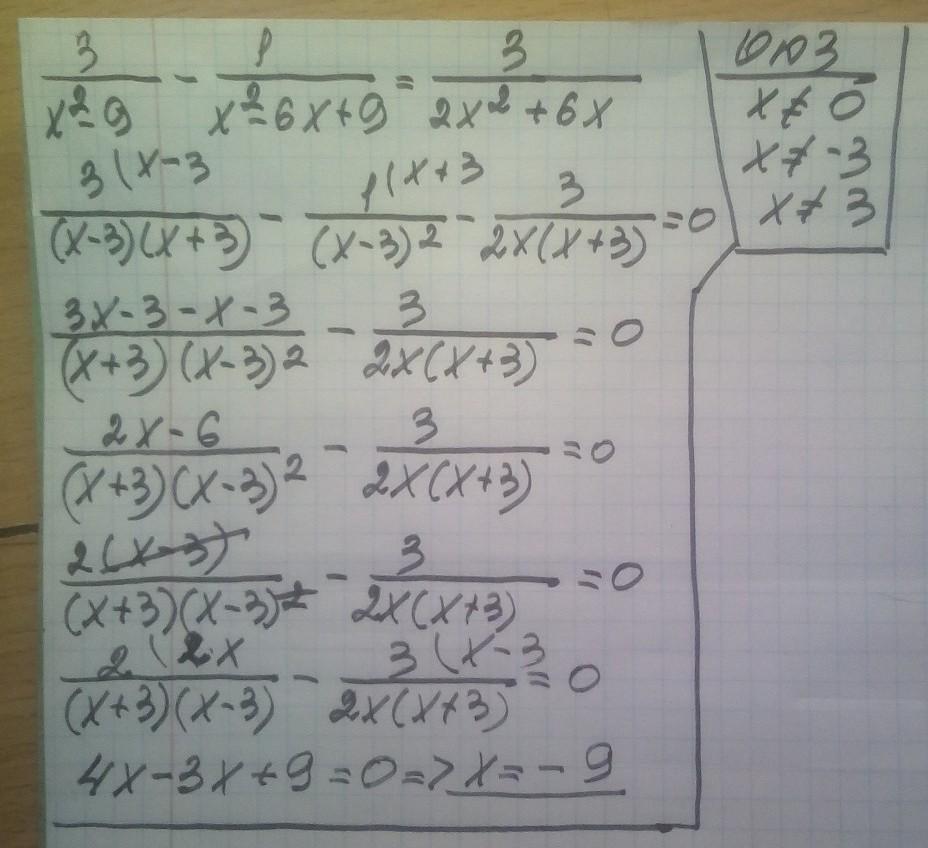 3/(x²-9) - 1/(x²-6x+9) = 3/(2x²+6x)
3(x-3/((x-3)(x+3)) - 1(x+3/(x-3)² - 3/(2x(x+3)) = 0
(3x-3-x-3)/((x+3)(x-3)²) - 3/(2x(x+3)) = 0
(2x-6)/((x+3)(x-3)²) - 3/(2x(x+3)) = 0
2(x-3)/((x+3)(x-3)²) - 3/(2x(x+3)) = 0
2(2x/((x+3)(x-3)) - 3(x-3/(2x(x+3)) = 0
4x-3x+9=0=>x=-9
ОДЗ
x≠0
x≠-3
x≠3